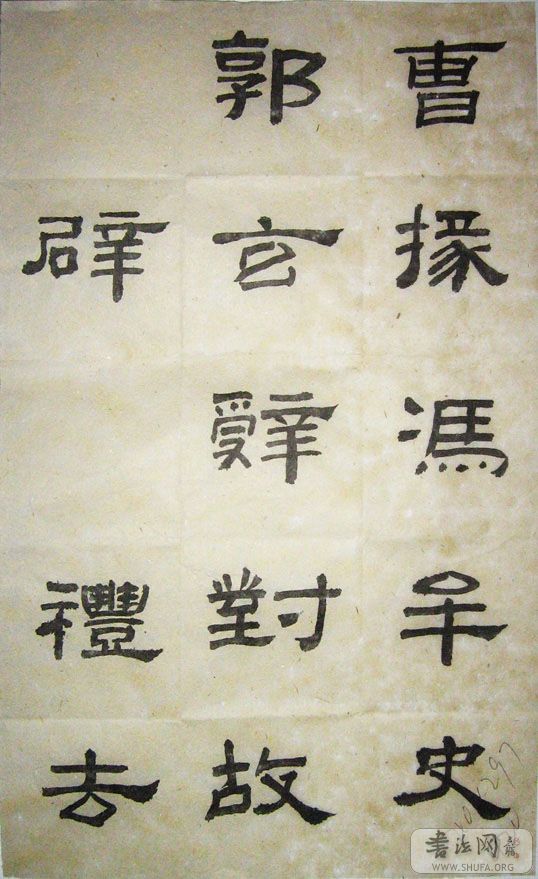 曹掾馮牟史
郭玄辤對故
辟禮去
書法网
WWW.SHUFA.ORG